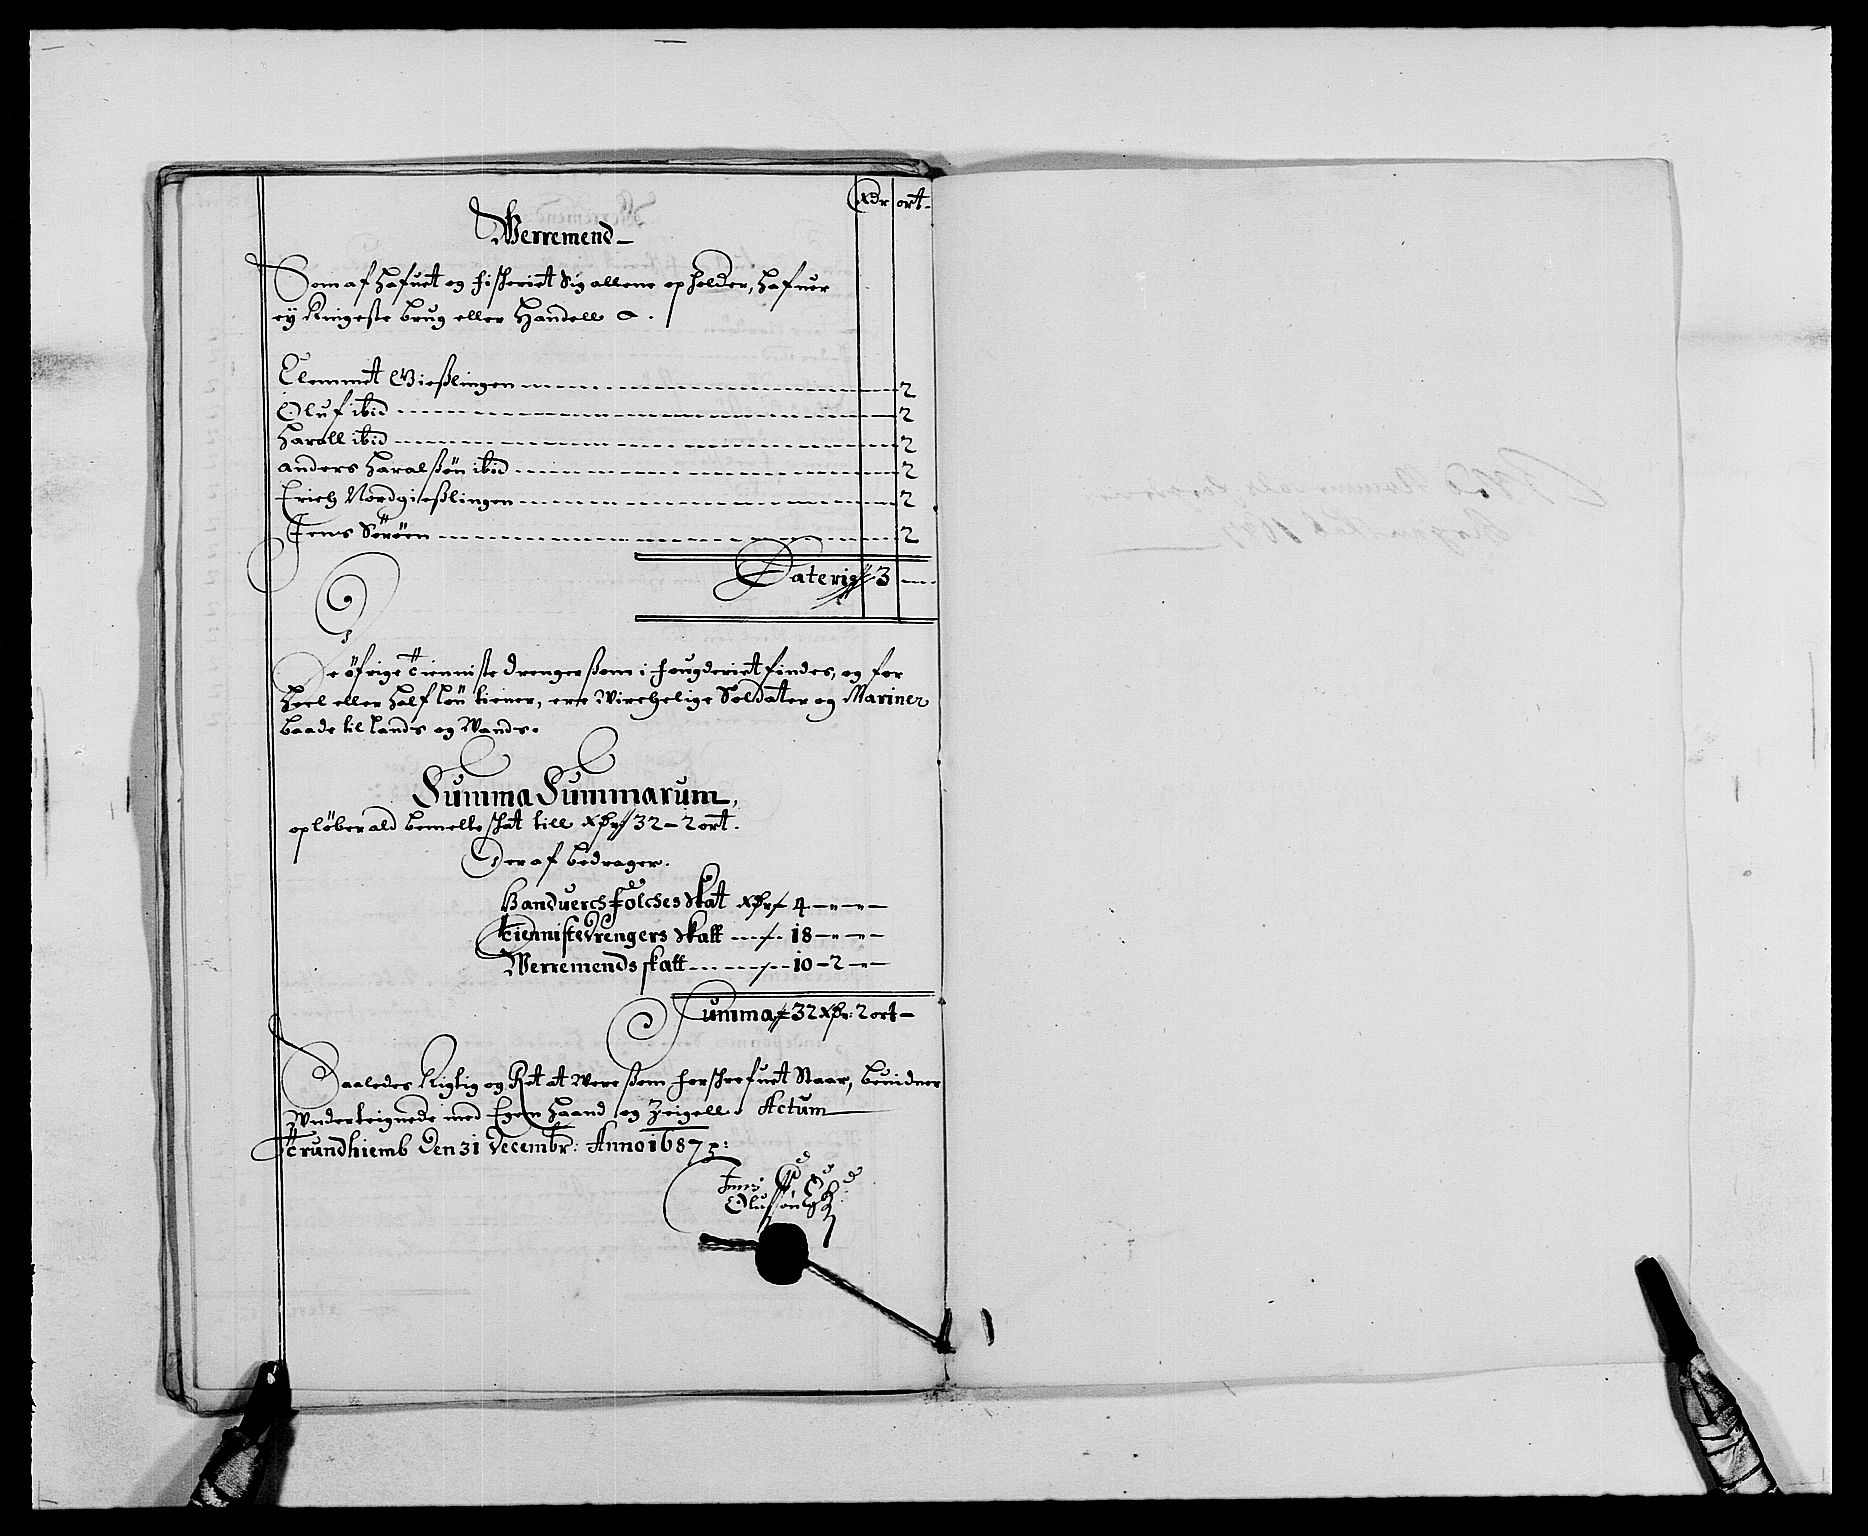 Rdr ort
Werremend
Som af hafuet og fischeriet Sig allene opholder, hafuer
eÿ Ringeste brug eller Handell
Clemmet Giesslingen 2
Oluf ibid 2
Harall ibid 2
Anders Haralssön ibid 2
Erich Nordgiesslingen 2
Jens Söröen 2
Lateris 3
De öfrige tienniste drenger ssom i fougderiet findes, og for
heel eller half lön tiener, ere Wirchelige Soldater og Mariner
baade til lands og Wands.
Summa Summarum,
oplöber ald bemelte schat till Rdr 32 - 2 ort.
Der af bedrager.
Handuerchs folches Skat Rdr 4
Tienniste drengers skatt 18
Werremends skatt 10 - 2
Summa 32 Rdr: 2 ort
Saaledes Rigtig og Ret at Were ssom forschrefuet Staar, beuidner
Wnderteignede med Egen Haand og Zeigell. Actum
Trundhiemb den 31 decembr: Anno 1687
Jens
Olufssön